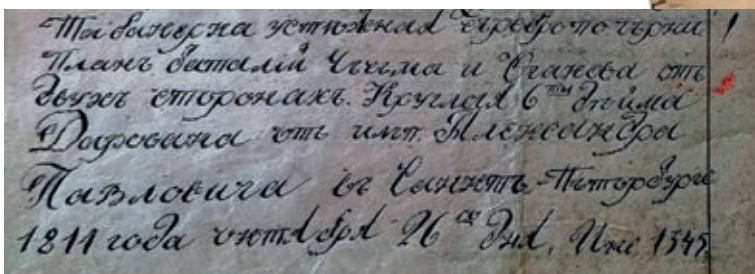 Табакерка устюжная серебро по черни 1
Планъ баталій Чесма и Очакова отъ
двухъ сторонахъ. Круглая 6ты дюйма
Дарована отъ имп. Александра
Павловича въ Санктъ-Петербурге
1811 года октября 26го дня. Инс. 1545